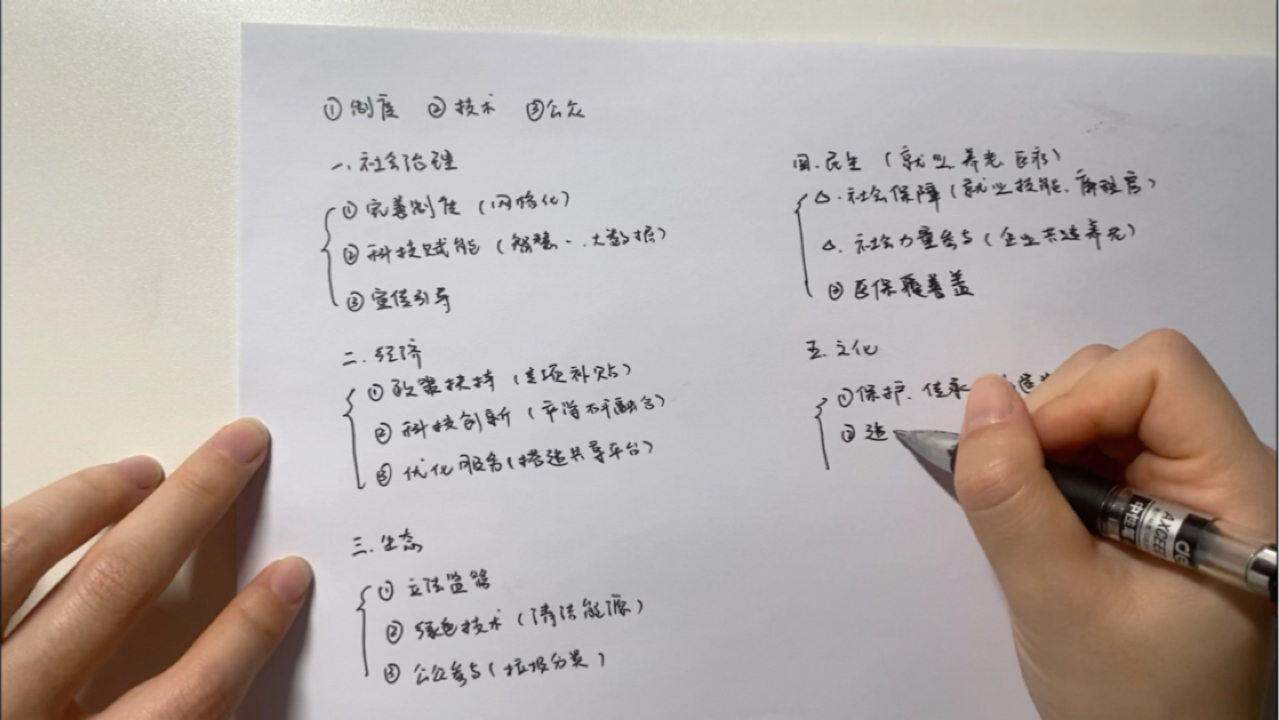 ① 制度 ② 技术 ③公众
一.社会治理
① 完善制度（网格化）
② 科技赋能（智慧...大数据）
③ 宣传引导
二.经济
① 政策扶持（专项补贴）
② 科技创新（产学研融合）
③ 优化服务（搭建共享平台）
三.生态
① 立法监管
② 绿色技术（清洁能源）
③ 公众参与（垃圾分类）
四.民生（就业 养老 医疗）
△.社会保障（就业技能.）
△.社会力量参与（企业共建养老）
③ 医保覆盖
五.文化
①保护.传承
②
AXCEE